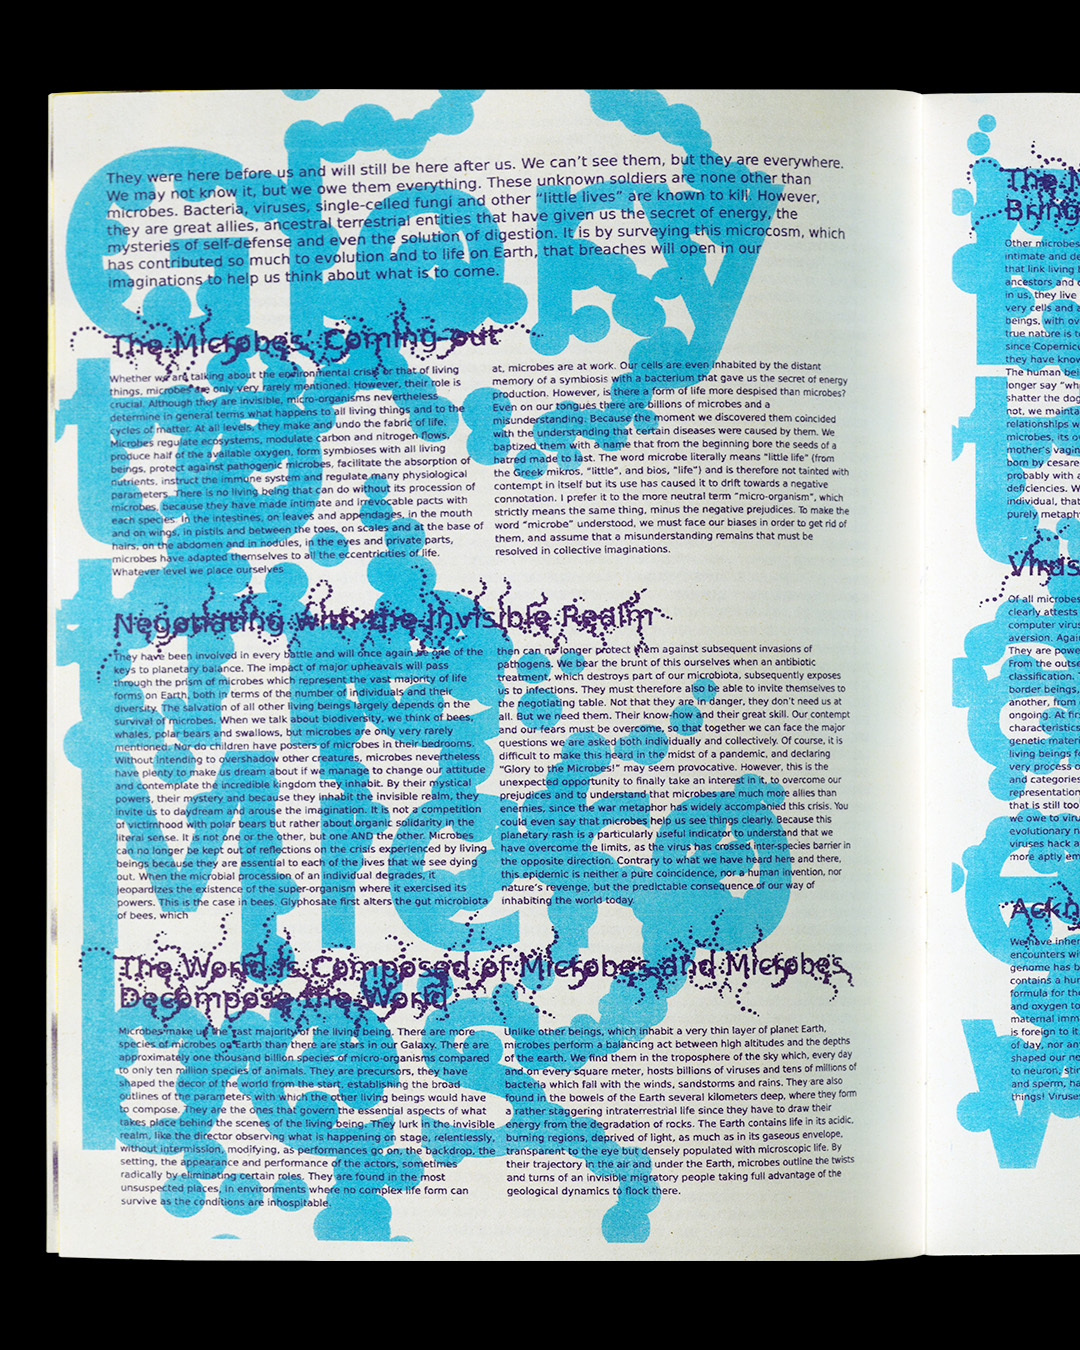 Glory
to
the
Micro
bes
They were here before us and will still be here after us. We can't see them, but they are everywhere.
We may not know it, but we owe them everything. These unknown soldiers are none other than
microbes. Bacteria, viruses, single-celled fungi and other “little lives” are known to kill. However,
they are great allies, ancestral terrestrial entities that have given us the secret of energy, the
mysteries of self-defense and even the solution of digestion. It is by surveying this microcosm, which
has contributed so much to evolution and to life on Earth, that breaches will open in our
imaginations to help us think about what is to come.
The Microbes’ Coming-out
Whether we are talking about the environmental crisis or that of living
things, microbes are only very rarely mentioned. However, their role is
crucial. Although they are invisible, micro-organisms nevertheless
determine in general terms what happens to all living things and to the
cycles of matter. At all levels, they make and undo the fabric of life.
Microbes regulate ecosystems, modulate carbon and nitrogen flows,
produce half of the available oxygen, form symbioses with all living
beings, protect against pathogenic microbes, facilitate the absorption of
nutrients, instruct the immune system and regulate many physiological
parameters. There is no living being that can do without its procession of
microbes, because they have made intimate and irrevocable pacts with
each species. In the intestines, on leaves and appendages, in the mouth
and on wings, in pistils and between the toes, on scales and at the base of
hairs, on the abdomen and in nodules, in the eyes and private parts,
microbes have adapted themselves to all the eccentricities of life.
Whatever level we place ourselves
at, microbes are at work. Our cells are even inhabited by the distant
memory of a symbiosis with a bacterium that gave us the secret of energy
production. However, is there a form of life more despised than microbes?
Even on our tongues there are billions of microbes and a
misunderstanding. Because the moment we discovered them coincided
with the understanding that certain diseases were caused by them. We
baptized them with a name that from the beginning bore the seeds of a
hatred made to last. The word microbe literally means “little life” (from
the Greek mikros, “little”, and bios, “life”) and is therefore not tainted with
contempt in itself but its use has caused it to drift towards a negative
connotation. I prefer it to the more neutral term “micro-organism”, which
strictly means the same thing, minus the negative prejudices. To make the
word “microbe” understood, we must face our biases in order to get rid of
them, and assume that a misunderstanding remains that must be
resolved in collective imaginations.
Negotiating with the Invisible Realm
They have been involved in every battle and will once again be one of the
keys to planetary balance. The impact of major upheavals will pass
through the prism of microbes which represent the vast majority of life
forms on Earth, both in terms of the number of individuals and their
diversity. The salvation of all other living beings largely depends on the
survival of microbes. When we talk about biodiversity, we think of bees,
whales, polar bears and swallows, but microbes are only very rarely
mentioned. Nor do children have posters of microbes in their bedrooms.
Without intending to overshadow other creatures, microbes nevertheless
have plenty to make us dream about if we manage to change our attitude
and contemplate the incredible kingdom they inhabit. By their mystical
powers, their mystery and because they inhabit the invisible realm, they
invite us to daydream and arouse the imagination. It is not a competition
of victimhood with polar bears but rather about organic solidarity in the
literal sense. It is not one or the other, but one AND the other. Microbes
can no longer be kept out of reflections on the crisis experienced by living
beings because they are essential to each of the lives that we see dying
out. When the microbial procession of an individual degrades, it
jeopardizes the existence of the super-organism where it exercised its
powers. This is the case in bees. Glyphosate first alters the gut microbiota
of bees, which
then can no longer protect them against subsequent invasions of
pathogens. We bear the brunt of this ourselves when an antibiotic
treatment, which destroys part of our microbiota, subsequently exposes
us to infections. They must therefore also be able to invite themselves to
the negotiating table. Not that they are in danger, they don't need us at
all. But we need them. Their know-how and their great skill. Our contempt
and our fears must be overcome, so that together we can face the major
questions we are asked both individually and collectively. Of course, it is
difficult to make this heard in the midst of a pandemic, and declaring
“Glory to the Microbes!” may seem provocative. However, this is the
unexpected opportunity to finally take an interest in it, to overcome our
prejudices and to understand that microbes are much more allies than
enemies, since the war metaphor has widely accompanied this crisis. You
could even say that microbes help us see things clearly. Because this
planetary rash is a particularly useful indicator to understand that we
have overcome the limits, as the virus has crossed inter-species barrier in
the opposite direction. Contrary to what we have heard here and there,
this epidemic is neither a pure coincidence, nor a human invention, nor
nature's revenge, but the predictable consequence of our way of
inhabiting the world today.
The World Is Composed of Microbes and Microbes
Decompose the World
Microbes make up the vast majority of the living being. There are more
species of microbes on Earth than there are stars in our Galaxy. There are
approximately one thousand billion species of micro-organisms compared
to only ten million species of animals. They are precursors, they have
shaped the decor of the world from the start, establishing the broad
outlines of the parameters with which the other living beings would have
to compose. They are the ones that govern the essential aspects of what
takes place behind the scenes of the living being. They lurk in the invisible
realm, like the director observing what is happening on stage, relentlessly,
without intermission, modifying, as performances go on, the backdrop, the
setting, the appearance and performance of the actors, sometimes
radically by eliminating certain roles. They are found in the most
unsuspected places, in environments where no complex life form can
survive as the conditions are inhospitable.
Unlike other beings, which inhabit a very thin layer of planet Earth,
microbes perform a balancing act between high altitudes and the depths
of the earth. We find them in the troposphere of the sky which, every day
and on every square meter, hosts billions of viruses and tens of millions of
bacteria which fall with the winds, sandstorms and rains. They are also
found in the bowels of the Earth several kilometers deep, where they form
a rather staggering intraterrestrial life since they have to draw their
energy from the degradation of rocks. The Earth contains life in its acidic,
burning regions, deprived of light, as much as in its gaseous envelope,
transparent to the eye but densely populated with microscopic life. By
their trajectory in the air and under the Earth, microbes outline the twists
and turns of an invisible migratory people taking full advantage of the
geological dynamics to flock there.
The
Bring
Other microbes
intimate and de
that link living
ancestors and
in us, they live
very cells and
beings, with ov
true nature is
since Copernic
they have know
The human bei
longer say “wh
shatter the dog
not, we mainta
relationships w
microbes, its o
mother's vagin
born by cesare
probably with
deficiencies. W
individual, tha
purely metaph
Virus
Of all microbes
clearly attests
computer virus
aversion. Again
They are powe
From the outse
classification.
border beings,
another, from
ongoing. At fir
characteristics
genetic mater
living beings f
very process o
and categories
representation
that is still too
we owe to viru
evolutionary n
viruses hack a
more aptly em
Ackn
We have inher
encounters wi
genome has b
contains a hu
formula for the
and oxygen to
maternal imm
is foreign to it
of day, nor an
shaped our ne
to neuron, stir
and sperm, ha
things! Viruse